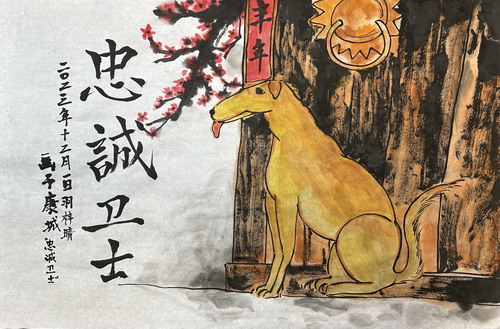 丰年
忠誠卫士
二〇二三年十二月一日羽梓晴
画于康城忠誠卫士